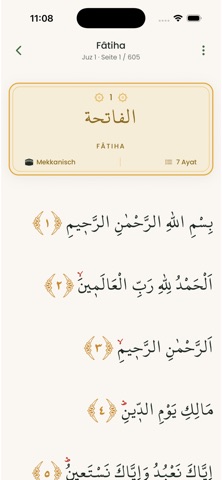 11:08
Fâtiha
Juz 1 · Seite 1 / 605
1
الفاتحة
FÂTIHA
Mekkanisch
7 Ayat
بِسْمِ اللهِ الرَّحْمٰنِ الرَّح۪يمِ ﴿١﴾
اَلْحَمْدُ لِلّٰهِ رَبِّ الْعَالَم۪ينَۙ ﴿٢﴾
اَلرَّحْمٰنِ الرَّح۪يمِۙ ﴿٣﴾
مَالِكِ يَوْمِ الدّ۪ينِۜ ﴿٤﴾
اِيَّاكَ نَعْبُدُ وَاِيَّاكَ نَسْتَع۪ينُۜ ﴿٥﴾